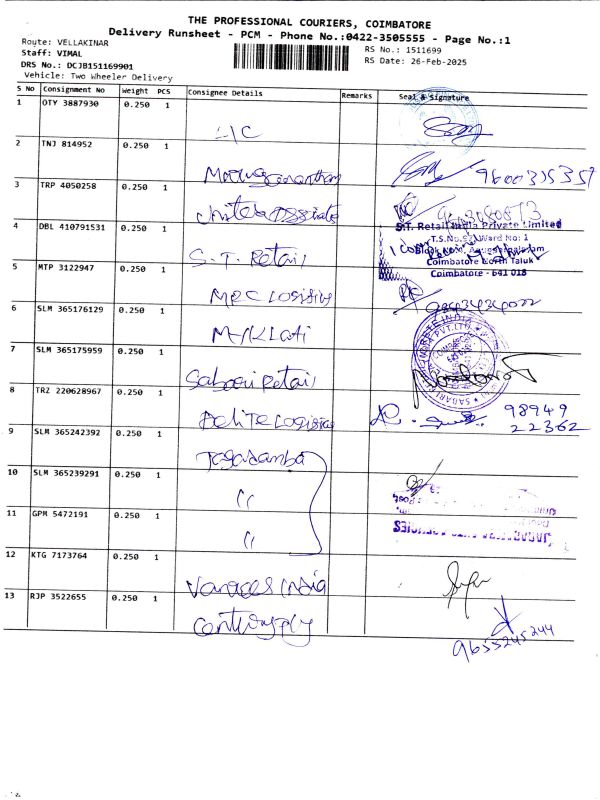 THE PROFESSIONAL COURIERS, COIMBATORE
Delivery Runsheet - PCM - Phone No.:0422-3505555 - Page No.:1
Route: VELLAKINAR
RS No.: 1511699
Staff: VIMAL
RS Date: 26-Feb-2025
DRS No.: DCJB151169901
Vehicle: Two Wheeler Delivery
S No Consignment No Weight PCS Consignee Details Remarks Seal & Signature
1 OTY 3887930 0.250 1 LIC
2 TNJ 814952 0.250 1 9600335357
3 TRP 4050258 0.250 1
4 DBL 410791531 0.250 1 S.T. Retail
S.T. Retail India Private Limited
Coimbatore North Taluk
Coimbatore - 641 018
5 MTP 3122947 0.250 1 MRC Logistics
6 SLM 365176129 0.250 1
7 SLM 365175959 0.250 1 Sabari Retail
8 TRZ 220628967 0.250 1 Delite Logistics 98949
22362
9 SLM 365242392 0.250 1 Jagadamba
10 SLM 365239291 0.250 1 "
11 GPM 5472191 0.250 1 "
12 KTG 7173764 0.250 1
13 RJP 3522655 0.250 1 Centuryply 9655245244